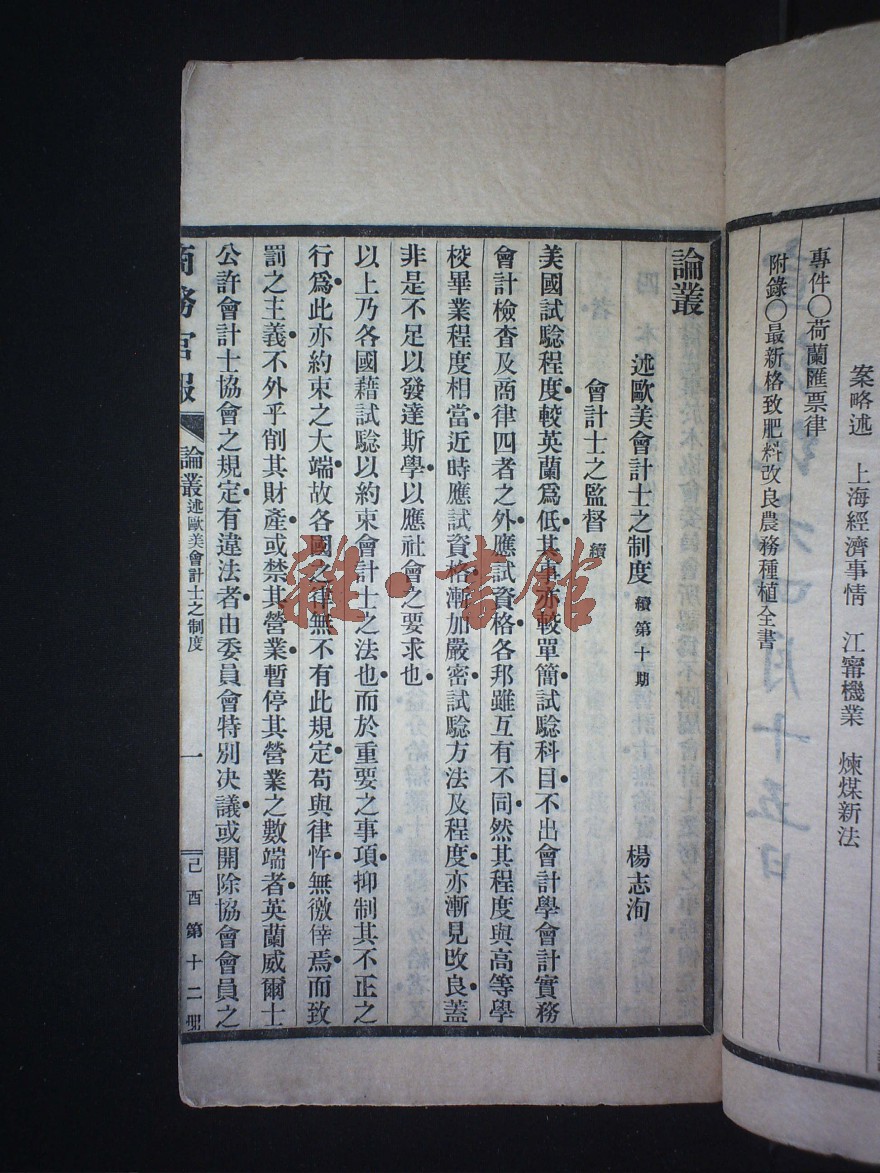 案略述　上海經濟事情　江甯機業　煉煤新法
專件〇荷蘭匯票律
附錄〇最新格致肥料改良農務種植全書
論叢
述歐美會計士之制度 續第十期　楊志洵
會計士之監督 續
美國試驗程度較英蘭爲低其事亦較單簡試驗科目不出會計學會計實務
會計檢查及商律四者之外應試資格各邦雖互有不同然其程度與高等學
校畢業程度相當近時應試資格漸加嚴密試驗方法及程度亦漸見改良蓋
非是不足以發達斯學以應社會之要求也
以上乃各國藉試驗以約束會計士之法也而於重要之事項抑制其不正之
行爲此亦約束之大端故各國之律無不有此規定苟與律忤無徼倖焉而致
罰之主義不外乎削其財產或禁其營業暫停其營業之數端者英蘭威爾士
公許會計士協會之規定有違法者由委員會特別決議或開除協會會員之
商務官報　論叢 述歐美會計士之制度　一　己酉第十二冊
雜·書館